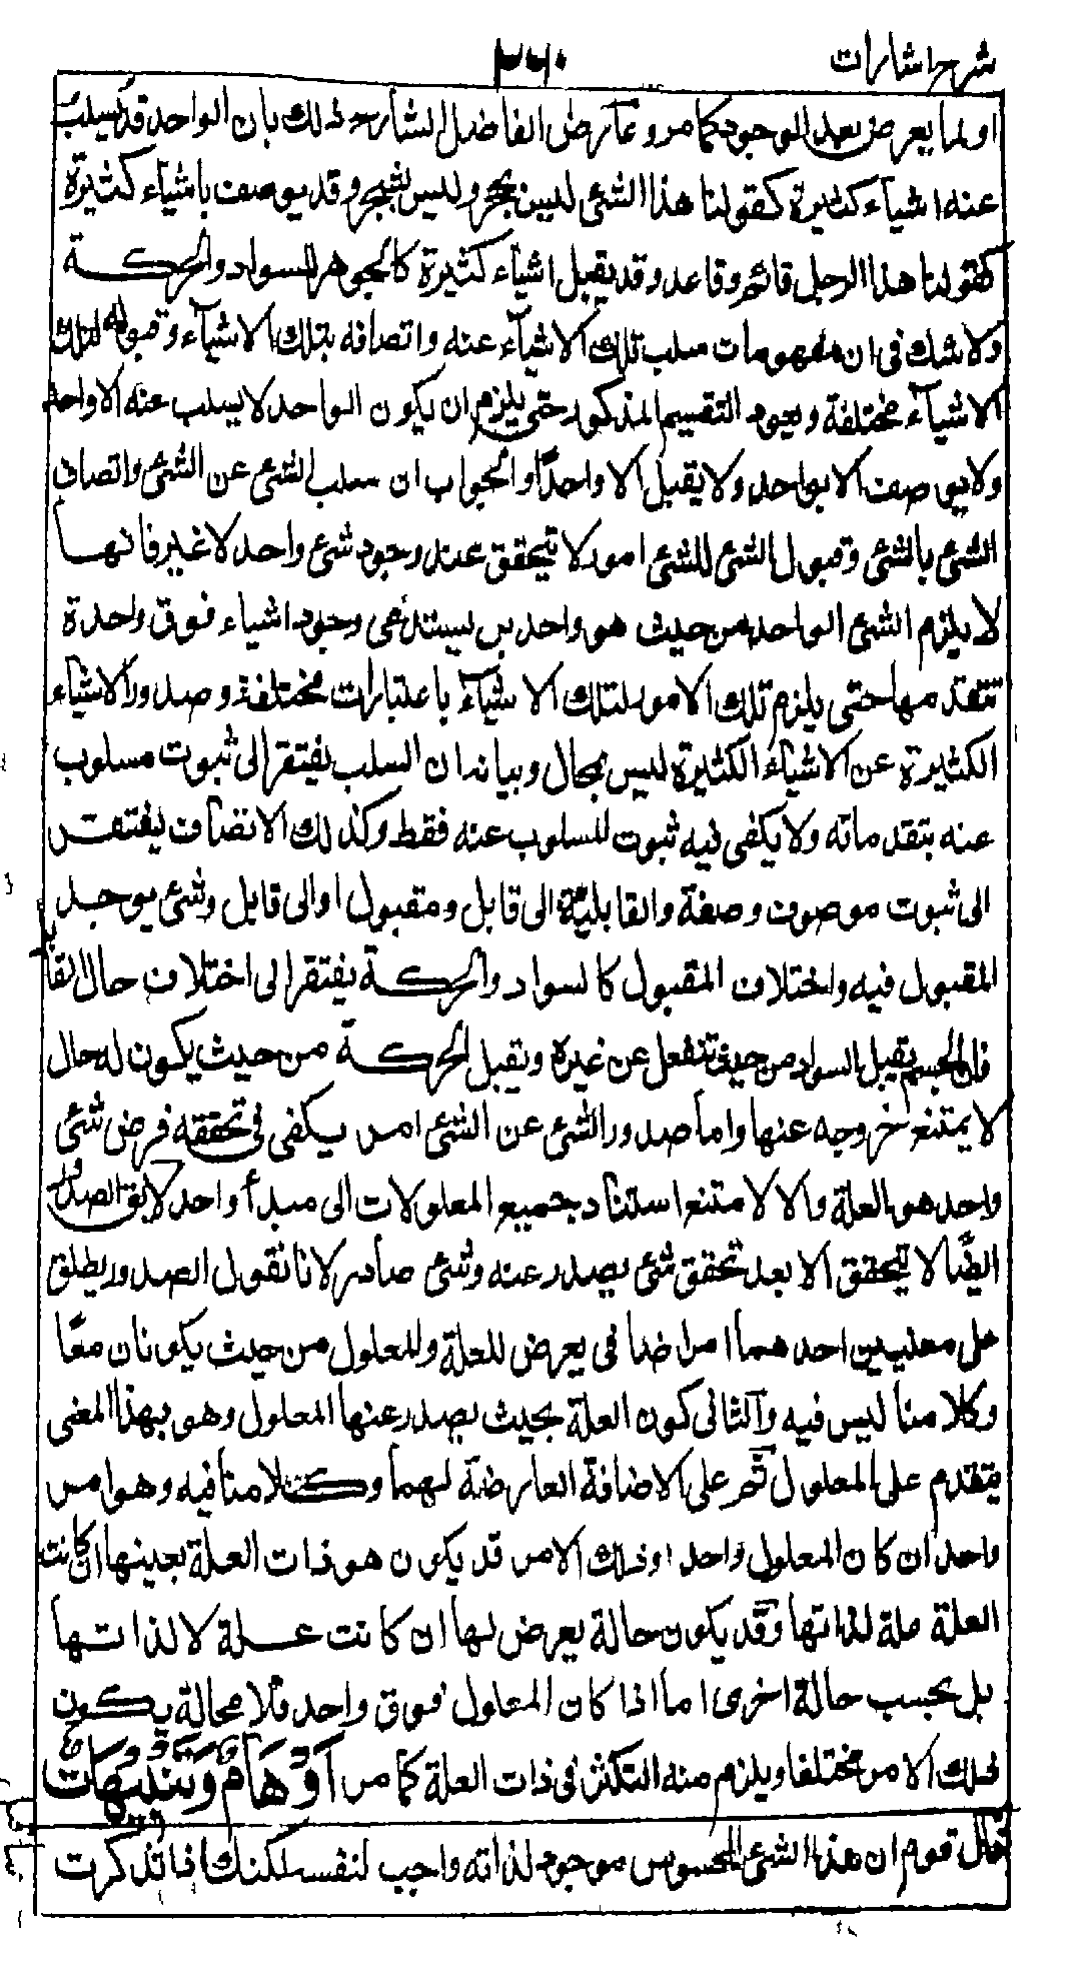 شرح اشارات
٢٦٠
او لما يعرض بعد الوجود كما مر وعارض الفاضل الشارح ذلك بان الواحد قد يسلب
عنه اشياء كثيرة كقولنا هذا الشئ ليس بحجر وليس بشجر وقد يوصف باشياء كثيرة
كقولنا هذا الرجل قائم وقاعد وقد يقبل اشياء كثيرة كالجوهر للسواد والحركة
ولا شك فى ان مفهومات سلب تلك الاشياء عنه واتصافه بتلك الاشياء وقبوله لتلك
الاشياء مختلفة ويعود التقسيم المذكور حتى يلزم ان يكون الواحد لا يسلب عنه الا واحد
ولا يوصف الا بواحد ولا يقبل الا واحدًا والجواب ان سلب الشئ عن الشئ واتصاف
الشئ بالشئ وقبول الشئ للشئ امور لا تتحقق عند وجود شئ واحد لا غير فانها
لا يلزم الشئ الواحد من حيث هو واحد بل يستدعى وجود اشياء فوق واحدة
تتقدمها حتى يلزم تلك الامور لتلك الاشياء باعتبارات مختلفة وصدور الاشياء
الكثيرة عن الاشياء الكثيرة ليس بمحال وبيانه ان السلب يفتقر الى ثبوت مسلوب
عنه يتقدمانه ولا يكفى فيه ثبوت المسلوب عنه فقط وكذلك الاتصاف يفتقر
الى ثبوت موصوف وصفة والقابلية الى قابل ومقبول او الى قابل وشئ يوجد
المقبول فيه واختلاف المقبول كالسواد والحركة يفتقر الى اختلاف حال القابل
فان الجسم يقبل السواد من حيث تنفعل عن غيره ويقبل الحركة من حيث يكون له حال
لا يمتنع خروجه عنها واما صدور الشئ عن الشئ امر يكفى فى تحققه فرض شئ
واحد هو العلة والا لامتنع استناد جميع المعلولات الى مبدأ واحد لا يق الصدور
ايضًا لا يتحقق الا بعد تحقق شئ يصدر عنه وشئ صادر لانا نقول الصدور يطلق
على معنيين احدهما امر اضافى يعرض للعلة وللمعلول من حيث يكونان معًا
وكلامنا ليس فيه والثانى كون العلة بحيث يصدر عنها المعلول وهو بهذا المعنى
يتقدم على المعلول ثم على الاضافة العارضة لهما وكلامنا فيه وهو امر
واحد ان كان المعلول واحدا وذلك الامر قد يكون هو ذات العلة بعينها ان كانت
العلة علة لذاتها وقد يكون حالة يعرض لها ان كانت علة لا لذاتها
بل بحسب حالة اخرى اما اذا كان المعلول فوق واحد فلا محالة يكون
ذلك الامر مختلفا ويلزم منه التكثر فى ذات العلة كما مر أَوْهَامٌ وَتَنْبِيهَاتٌ
قال قوم ان هذا الشئ المحسوس موجود لذاته واجب لنفسه لكنك اذا تذكرت